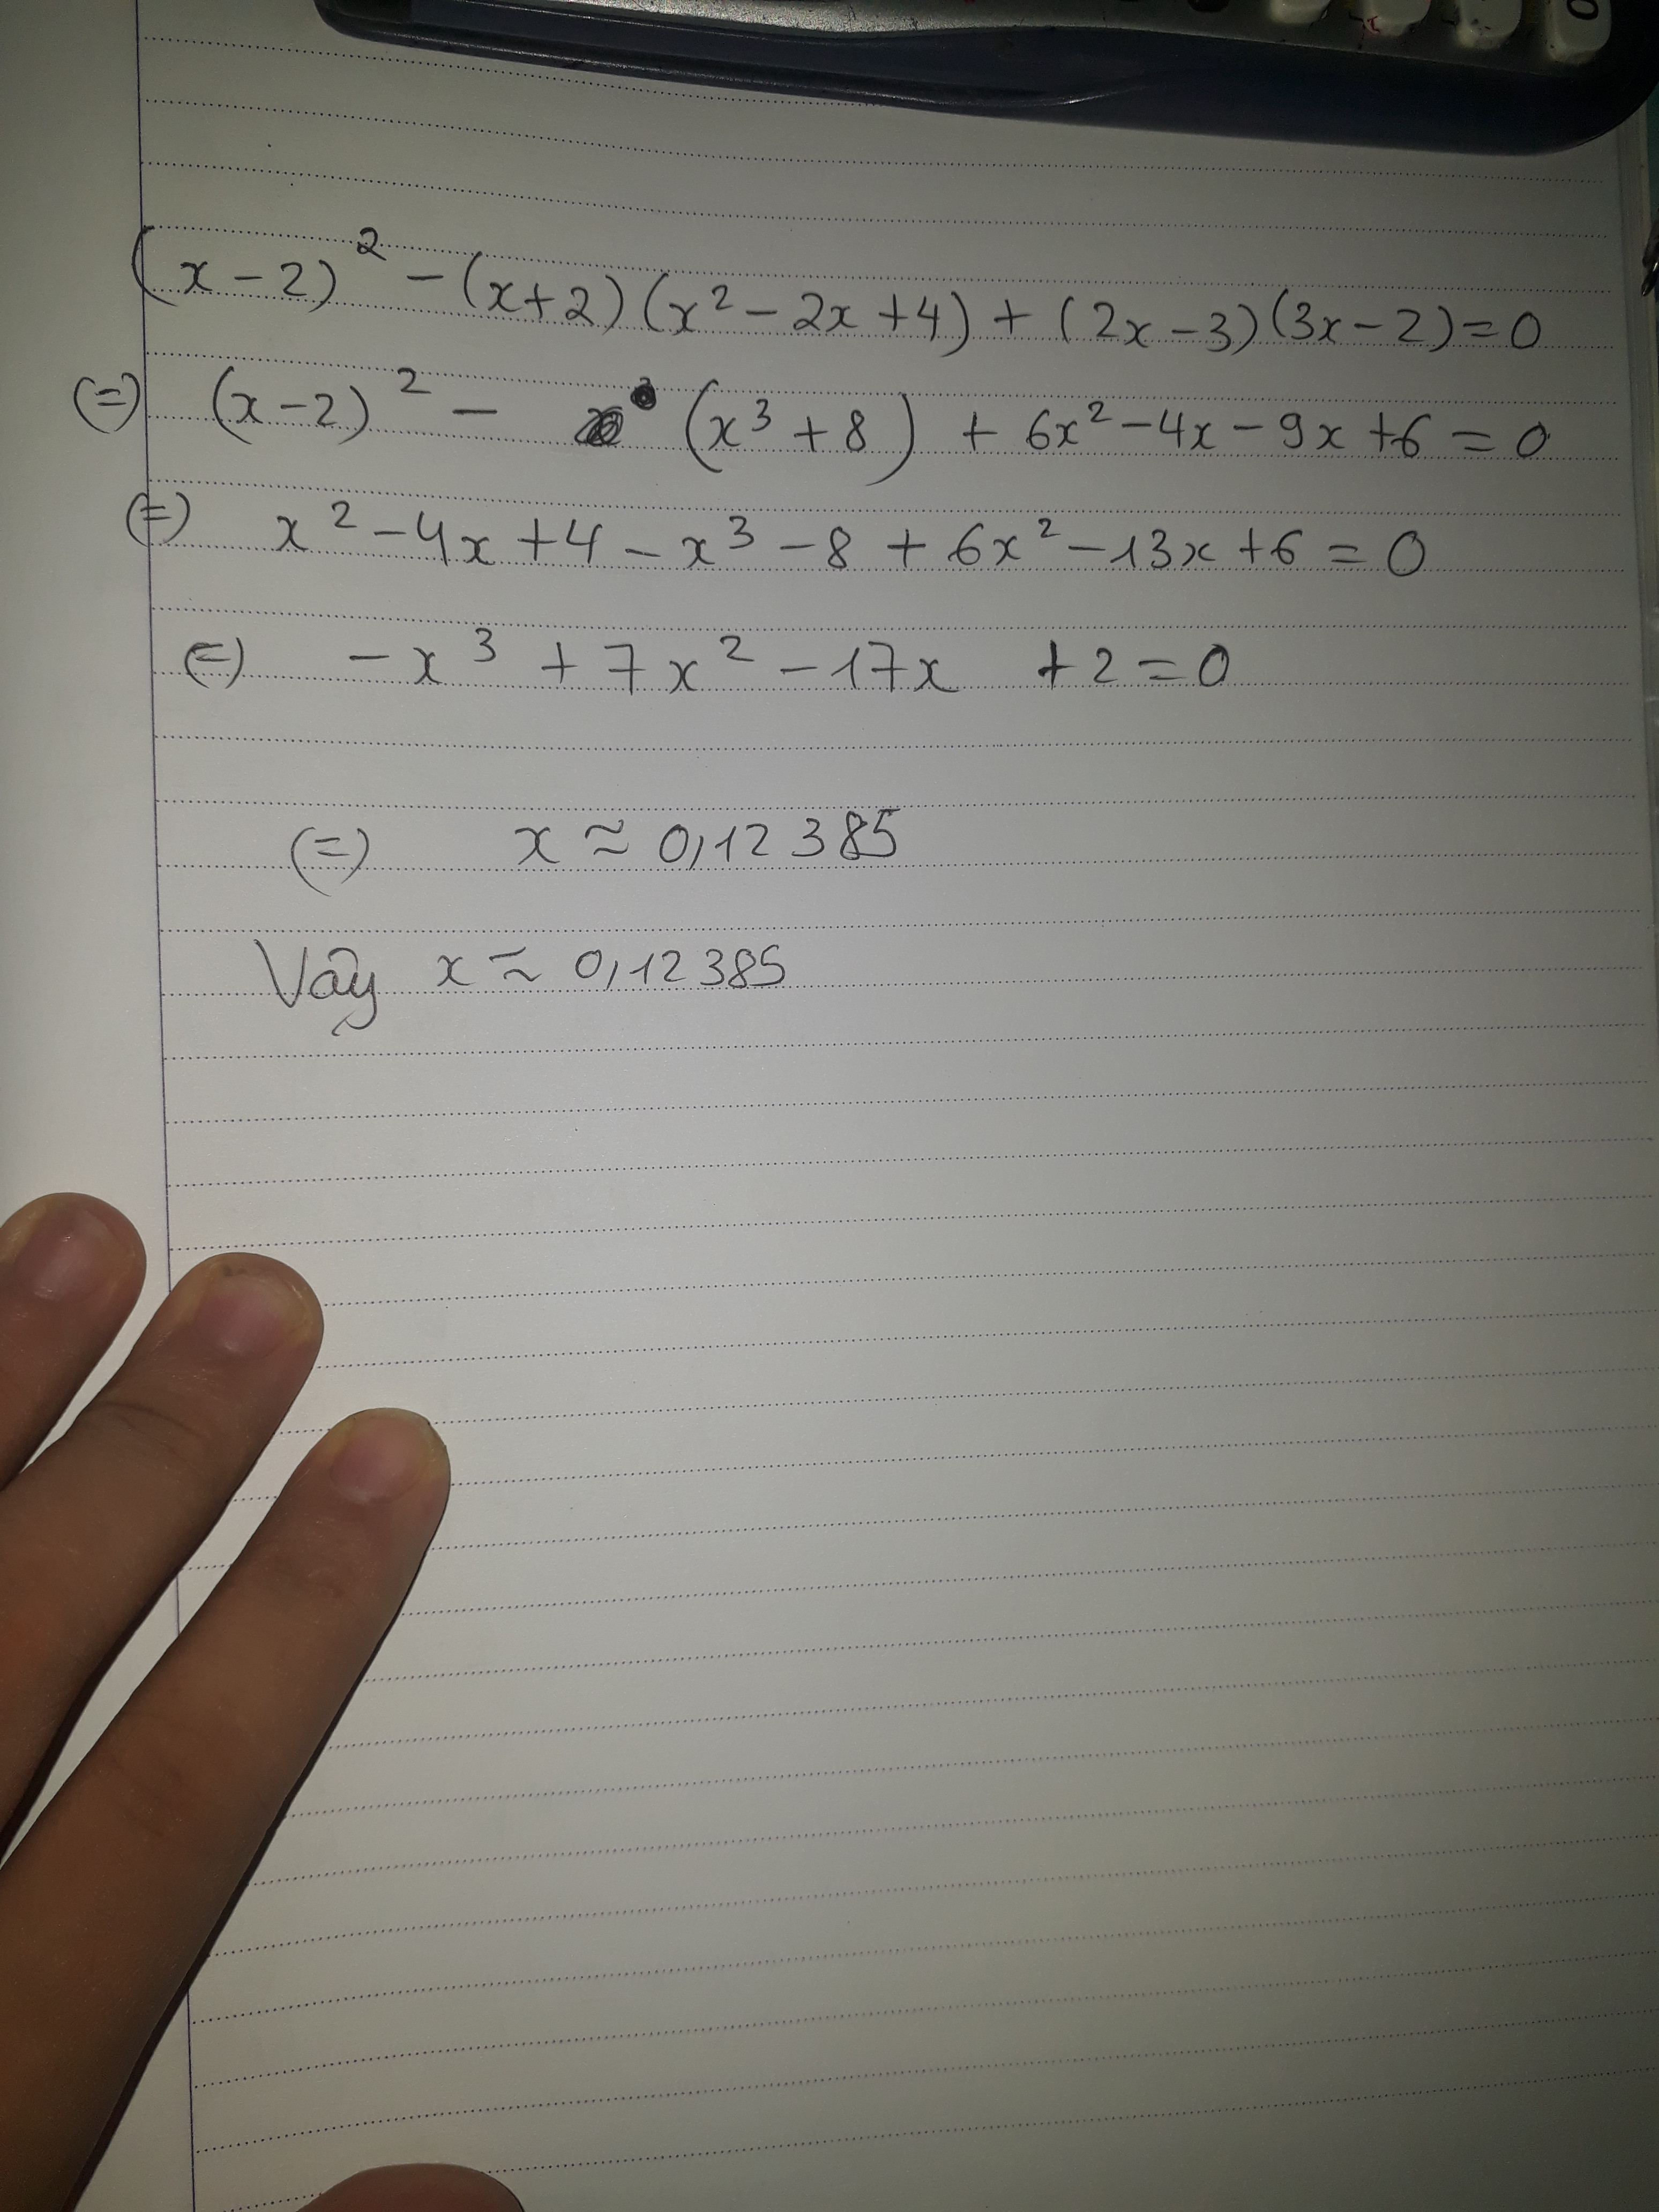 (x-2)² - (x+2)(x² - 2x + 4) + (2x - 3)(3x - 2) = 0
(=) (x-2)² - (x³ + 8) + 6x² - 4x - 9x + 6 = 0
(=) x² - 4x + 4 - x³ - 8 + 6x² - 13x + 6 = 0
(=) -x³ + 7x² - 17x + 2 = 0
(=) x ≈ 0,12385
Vậy x ≈ 0,12385